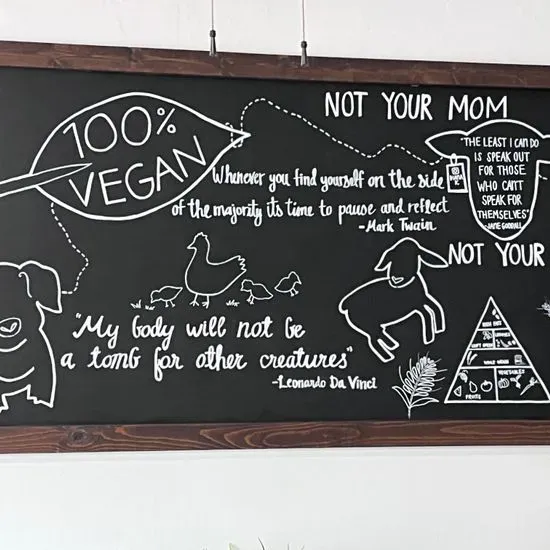 100%
VEGAN
NOT YOUR MOM
"THE LEAST I CAN DO
IS SPEAK OUT
FOR THOSE
WHO CAN'T
SPEAK FOR
THEMSELVES"
-JANE GOODALL
Whenever you find yourself on the side
of the majority its time to pause and reflect
-Mark Twain
NOT YOUR
"My body will not be
a tomb for other creatures"
-Leonardo Da Vinci
VEGETABLES
FRUITS